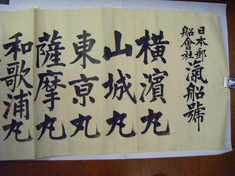 日本郵
船會社
滊船號
橫濱丸
山城丸
東京丸
薩摩丸
和歌浦丸